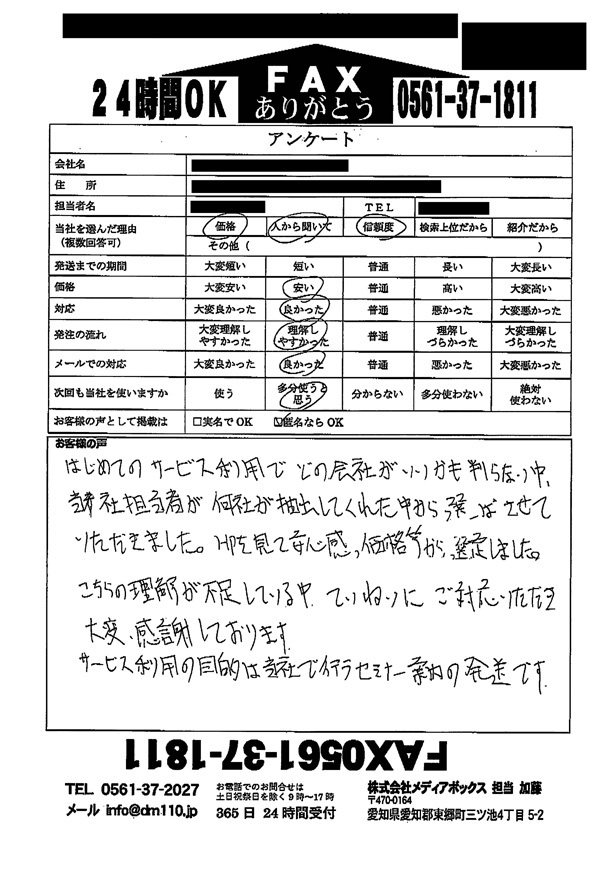 24時間OK
FAX
ありがとう
0561-37-1811
アンケート
会社名
住 所
担当者名 TEL
当社を選んだ理由 (複数回答可) 価格 人から聞いて 信頼度 検索上位だから 紹介だから
その他 ( )
発送までの期間 大変短い 短い 普通 長い 大変長い
価格 大変安い 安い 普通 高い 大変高い
対応 大変良かった 良かった 普通 悪かった 大変悪かった
発注の流れ 大変理解しやすかった 理解しやすかった 普通 理解しづらかった 大変理解しづらかった
メールでの対応 大変良かった 良かった 普通 悪かった 大変悪かった
次回も当社を使いますか 使う 多分使うと思う 分からない 多分使わない 絶対使わない
お客様の声として掲載は □実名でOK ☑匿名ならOK
お客様の声
はじめてのサービス利用でどの会社がいいかも判らない中、
社担当者が何社か抽出してくれた中から選ばさせて
いただきました。HPを見て安心感、価格等から選定しました。
こちらの理解が不足している中、ていねいにご対応いただき
大変、感謝しております。
サービス利用の目的は当社で行うセミナー案内の発送です。
FAX0561-37-1811
TEL 0561-37-2027
メール info@dm110.jp
お電話でのお問合せは
土日祝祭日を除く9時～17時
365日24時間受付
株式会社メディアボックス 担当 加藤
〒470-0164
愛知県愛知郡東郷町三ツ池4丁目5-2